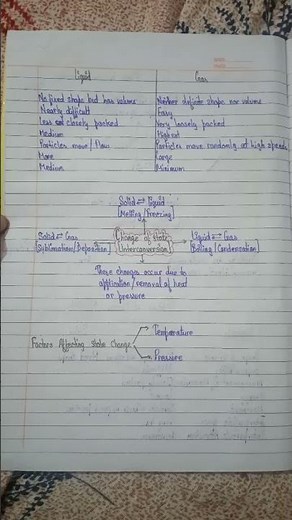 Liquid Gas
No fixed shape but has volume Neither definite shape nor volume
Nearly difficult Easy
Less closely packed Very loosely packed
Medium Highest
Particles move / Flow Particles move randomly at high speeds
More Large
Medium Minimum
Solid ⇌ Liquid
[Melting/Freezing]
Solid ⇌ Gas Change of State Liquid ⇌ Gas
[Sublimation/Deposition] Interconversion [Boiling/Condensation]
These changes occur due to
application/removal of heat
or pressure
Temperature
Factors Affecting State Change
Pressure